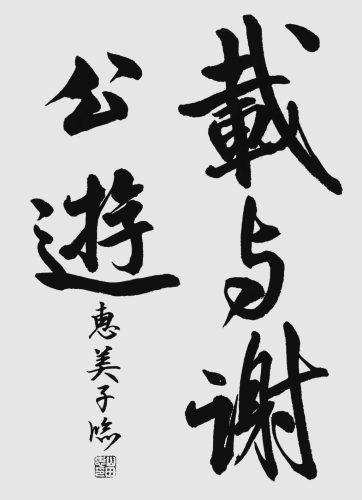 載与谢
公遊
恵美子臨